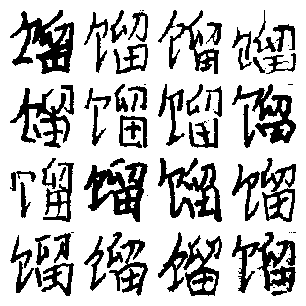 馏馏馏馏
馏馏馏馏
馏馏馏馏
馏馏馏馏